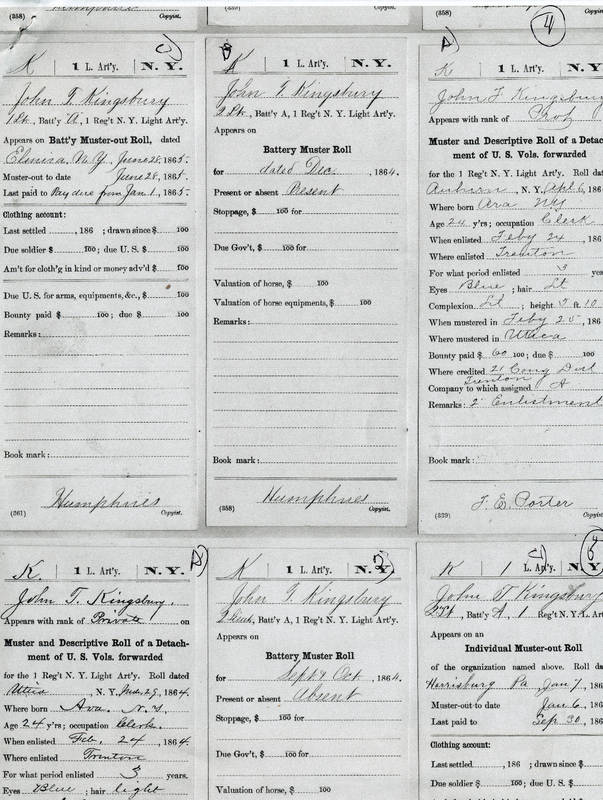 (358)
Copyist.
(359)
(358)
Copyist.
4
K
1 L. Art'y. N. Y.
John T. Kingsbury
1 Lt., Batt'y A, 1 Reg't N. Y. Light Art'y.
Appears on Batt'y Muster-out Roll, dated
Elmira, N. Y. June 28, 1865.
Muster-out to date June 28, 1865.
Last paid to Pay due from Jan. 1, 1865.
Clothing account:
Last settled , 186 ; drawn since $ 100
Due soldier $ 100; due U. S. $ 100
Am't for cloth'g in kind or money adv'd $ 100
Due U. S. for arms, equipments, &c., $ 100
Bounty paid $ 100; due $ 100
Remarks:
Book mark:
Humphries
(361)
Copyist.
B
K
1 L. Art'y. N. Y.
John T. Kingsbury
2 Lt., Batt'y A, 1 Reg't N. Y. Light Art'y.
Appears on
Battery Muster Roll
for dated Dec. , 1864.
Present or absent Present
Stoppage, $ 100 for
Due Gov't, $ 100 for
Valuation of horse, $ 100
Valuation of horse equipments, $ 100
Remarks:
Book mark:
Humphries
(358)
Copyist.
A
K
1 L. Art'y. N. Y.
John T Kingsbury
Appears with rank of
Muster and Descriptive Roll of a Detach-
ment of U. S. Vols. forwarded
for the 1 Reg't N. Y. Light Art'y. Roll dat
Auburn , N. Y. Apl 6, 186
Where born Ava NY
Age 24 y'rs; occupation Clerk
When enlisted Feby 24 , 186
Where enlisted Trenton
For what period enlisted 3 years
Eyes Blue ; hair Lt
Complexion Lt ; height 5 ft. 10
When mustered in Feby 25 , 186
Where mustered in Uttica
Bounty paid $ 60 100; due $ 100
Where credited 21 Cong Dist
Trenton
Company to which assigned A
Remarks: 2 Enlistment
Book mark:
T. E. Porter
(339)
Copyist.
K.
1 L. Art'y. N. Y.
John T. Kingsbury.
Appears with rank of Private on
Muster and Descriptive Roll of a Detach-
ment of U. S. Vols. forwarded
for the 1 Reg't N. Y. Light Art'y. Roll dated
Uttica , N. Y. , 1864.
Where born Ava. N. Y.
Age 24 y'rs; occupation Clerk.
When enlisted Feb. 24 , 1864.
Where enlisted Trenton
For what period enlisted 3 years.
Eyes Blue ; hair light
K
1 L. Art'y. N. Y.
John T. Kingsbury
2 Lieut, Batt'y A, 1 Reg't N. Y. Light Art'y.
Appears on
Battery Muster Roll
for Sept & Oct , 1864.
Present or absent Absent
Stoppage, $ 100 for
Due Gov't, $ 100 for
Valuation of horse, $ 100
K
1 L. Art'y. N. Y.
John T Kingsbury
Batt'y A, 1 Reg't N. Y. L. Art
Appears on an
Individual Muster-out Roll
of the organization named above. Roll da
Harrisburg Pa Jan 7, 186
Muster-out to date Jan 6, 186
Last paid to Sep 30, 186
Clothing account:
Last settled , 186 ; drawn since $
Due soldier $ 100; due U. S. $